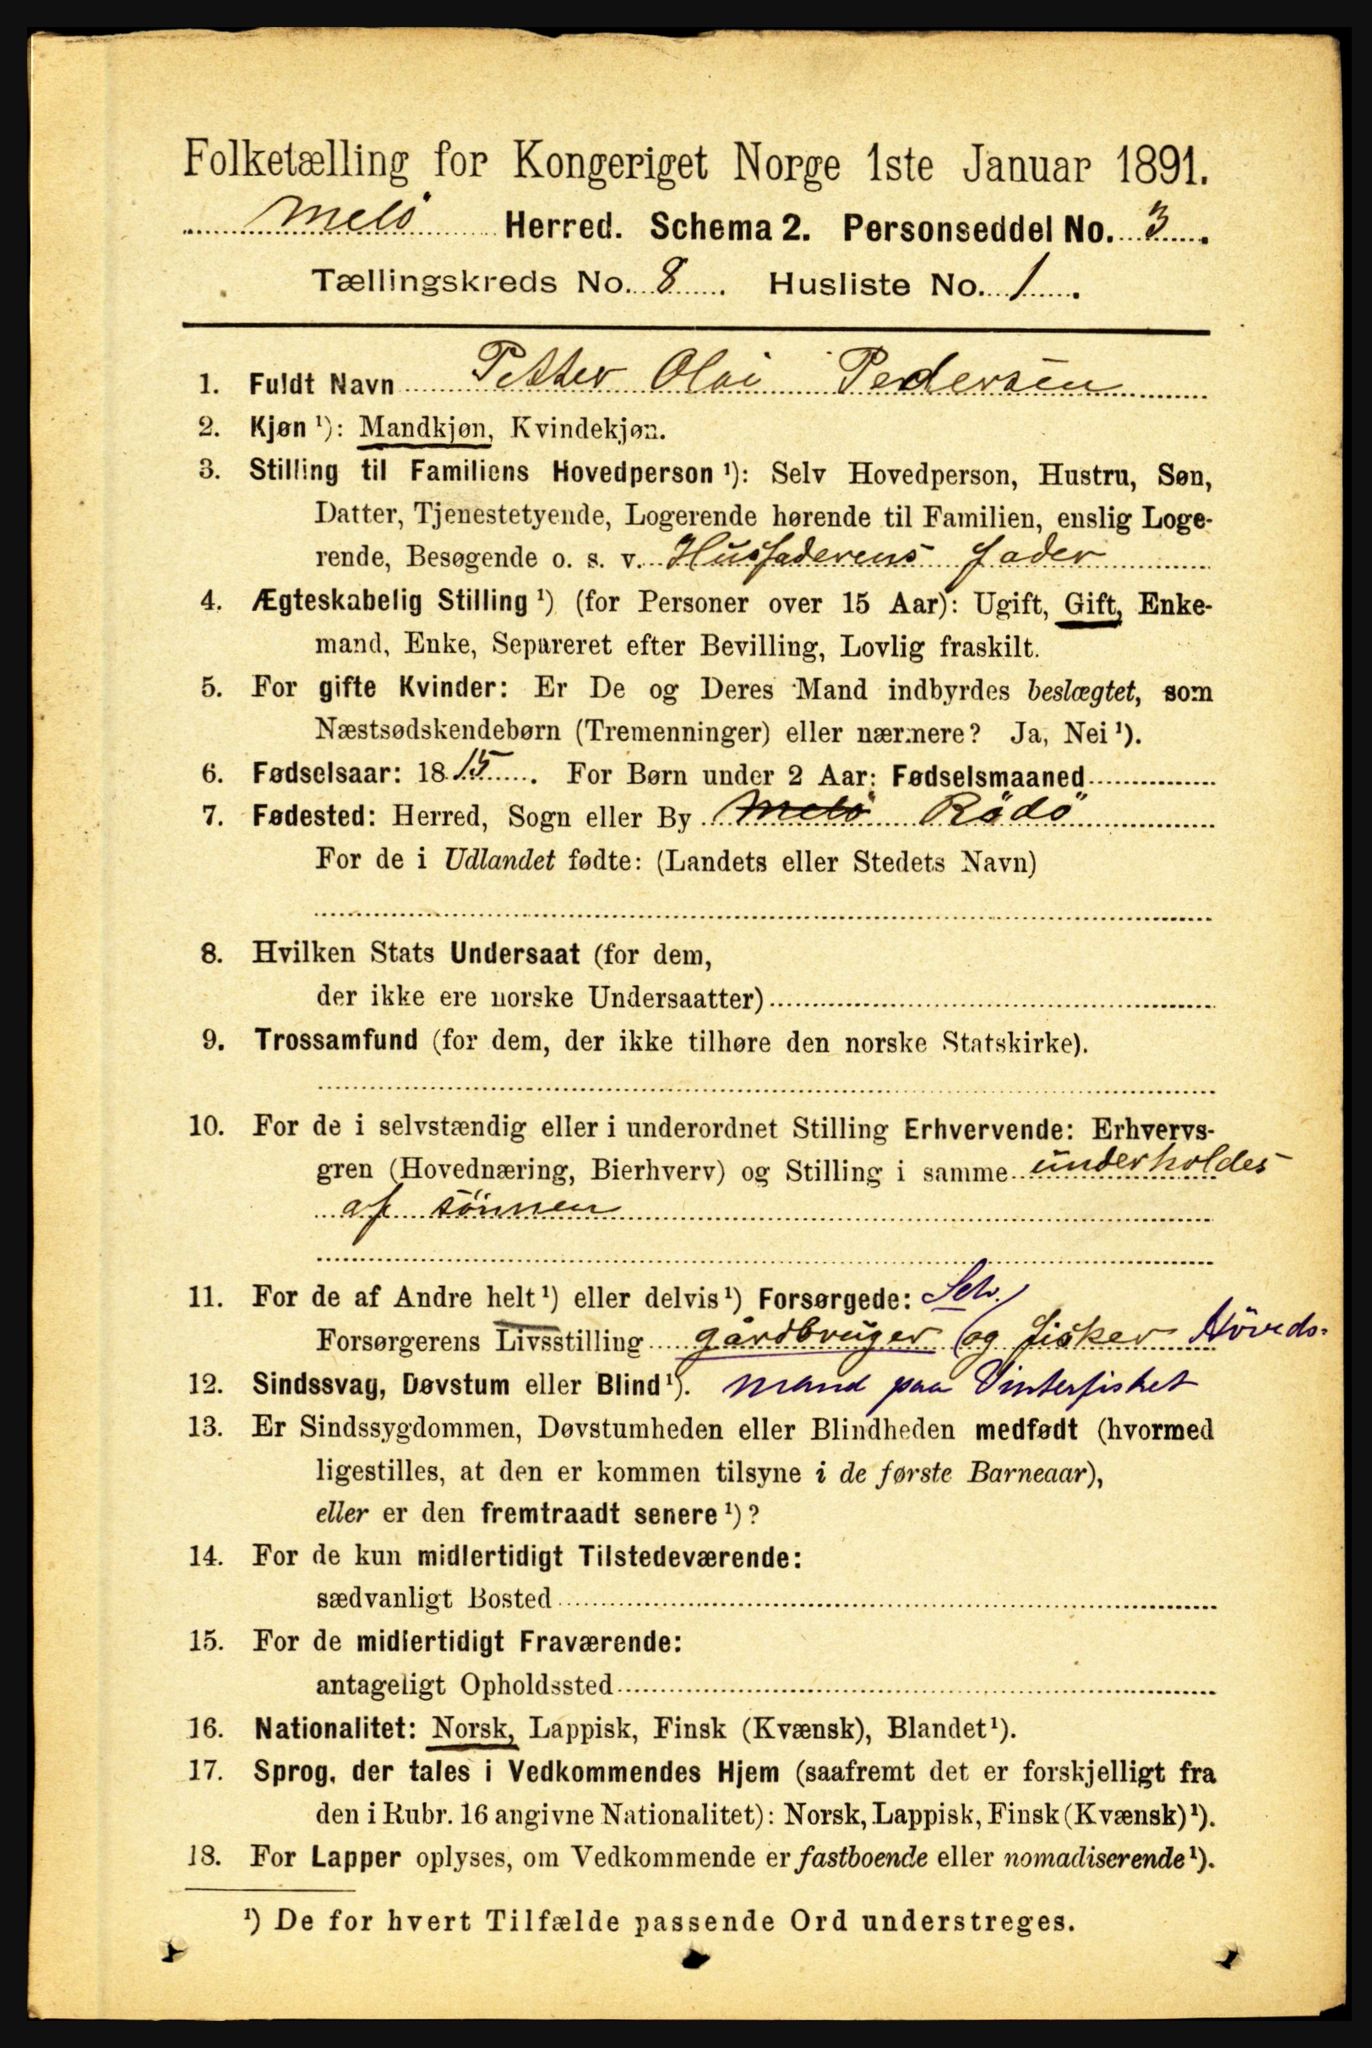 Folketælling for Kongeriget Norge 1ste Januar 1891.
Melö Herred. Schema 2. Personseddel No. 3.
Tællingskreds No. 8. Husliste No. 1.
1. Fuldt Navn Petter Olai Pedersen
2. Kjøn ¹): Mandkjøn, Kvindekjøn.
3. Stilling til Familiens Hovedperson ¹): Selv Hovedperson, Hustru, Søn,
Datter, Tjenestetyende, Logerende hørende til Familien, enslig Loge-
rende, Besøgende o. s. v. Husfaderens fader
4. Ægteskabelig Stilling ¹) (for Personer over 15 Aar): Ugift, Gift, Enke-
mand, Enke, Separeret efter Bevilling, Lovlig fraskilt.
5. For gifte Kvinder: Er De og Deres Mand indbyrdes beslægtet, som
Næstsødskendebørn (Tremenninger) eller nærmere? Ja, Nei ¹).
6. Fødselsaar: 1815. For Børn under 2 Aar: Fødselsmaaned
7. Fødested: Herred, Sogn eller By Melö Rödö
For de i Udlandet fødte: (Landets eller Stedets Navn)
8. Hvilken Stats Undersaat (for dem,
der ikke ere norske Undersaatter)
9. Trossamfund (for dem, der ikke tilhøre den norske Statskirke).
10. For de i selvstændig eller i underordnet Stilling Erhvervende: Erhvervs-
gren (Hovednæring, Bierhverv) og Stilling i samme underholdes
af sönnen
11. For de af Andre helt ¹) eller delvis ¹) Forsørgede: Selv.
Forsørgerens Livsstilling gårdbruger og fisker Höveds-
12. Sindssvag, Døvstum eller Blind ¹). mand paa Vinterfisket
13. Er Sindssygdommen, Døvstumheden eller Blindheden medfødt (hvormed
ligestilles, at den er kommen tilsyne i de første Barneaar),
eller er den fremtraadt senere ¹)?
14. For de kun midlertidigt Tilstedeværende:
sædvanligt Bosted
15. For de midlertidigt Fraværende:
antageligt Opholdssted
16. Nationalitet: Norsk, Lappisk, Finsk (Kvænsk), Blandet ¹).
17. Sprog, der tales i Vedkommendes Hjem (saafremt det er forskjelligt fra
den i Rubr. 16 angivne Nationalitet): Norsk, Lappisk, Finsk (Kvænsk) ¹).
18. For Lapper oplyses, om Vedkommende er fastboende eller nomadiserende ¹).
¹) De for hvert Tilfælde passende Ord understreges.